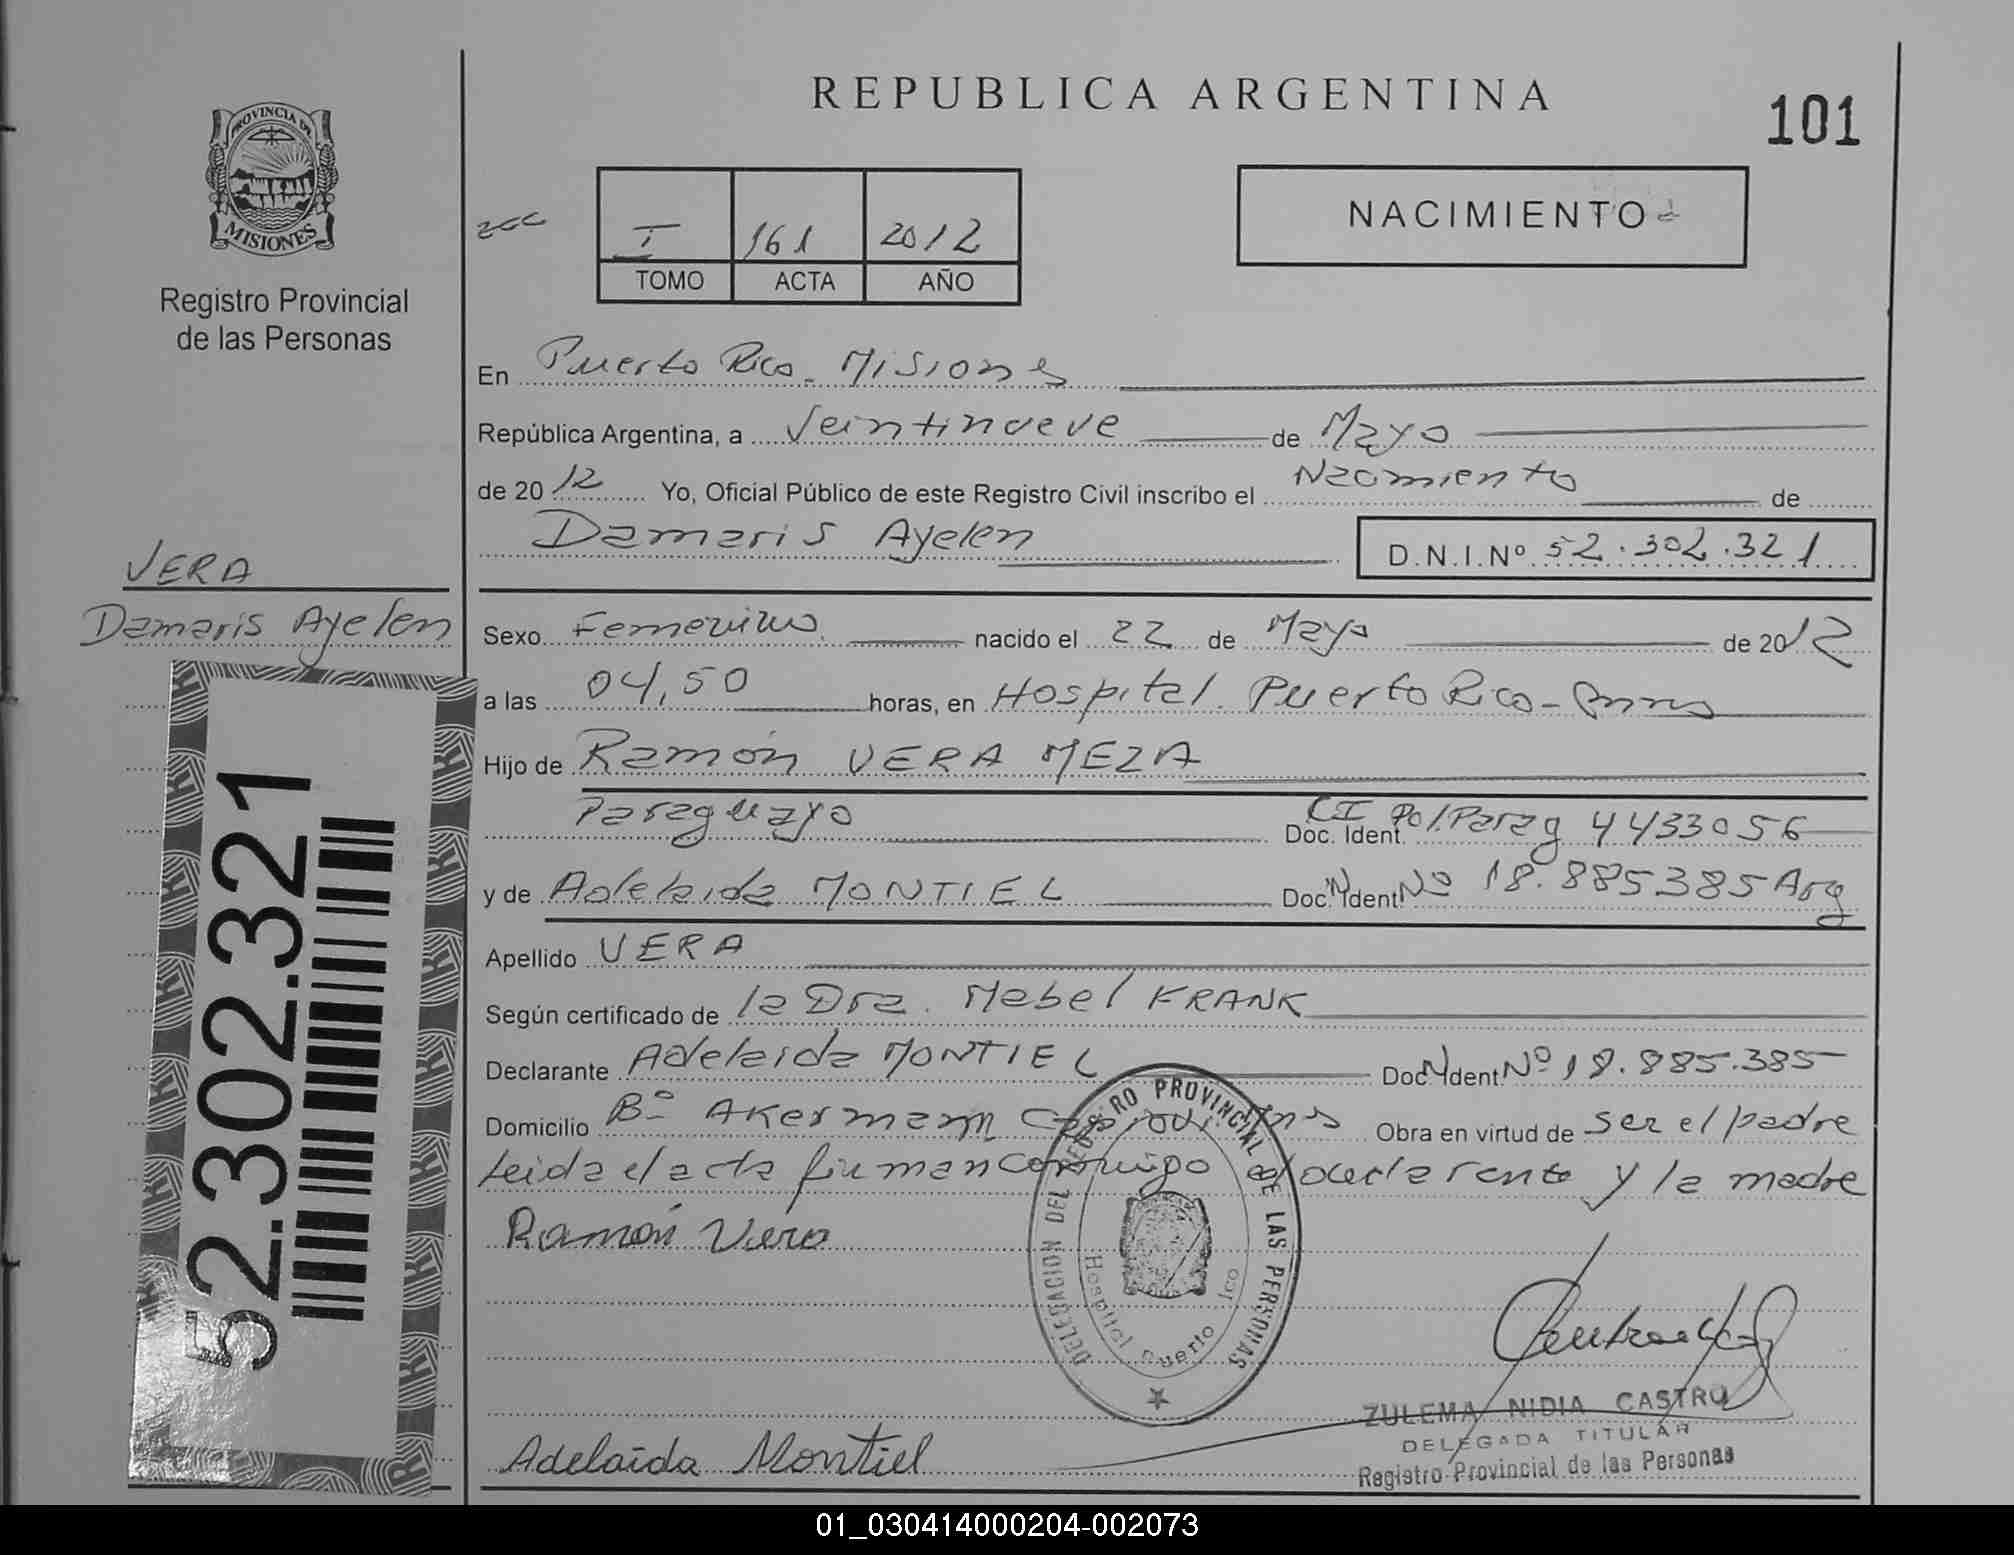 REPUBLICA ARGENTINA
101
PROVINCIA DE
MISIONES
Registro Provincial
de las Personas
I 161 2012
TOMO ACTA AÑO
NACIMIENTO
En Puerto Rico - Misiones
República Argentina, a Veintinueve de Mayo
de 2012 Yo, Oficial Público de este Registro Civil inscribo el Nacimiento de
Damaris Ayelen D.N.I.Nº 52.302.321
VERA
Damaris Ayelen
52.302.321
Sexo Femenino nacido el 22 de Mayo de 2012
a las 04,50 horas, en Hospital Puerto Rico -
Hijo de Ramón VERA MEZA
Paraguayo Doc. Ident. CI Pol. Parag 4433056
y de Adelaida MONTIEL Doc. Ident. Nº 18.885385 Arg
Apellido VERA
Según certificado de la Dra. Mabel FRANK
Declarante Adelaida MONTIEL Doc. Ident. Nº 18.885.385
Domicilio Bº Akermann Capiovi Mns Obra en virtud de ser el padre
Leida el acta firman conmigo el declarante y la madre
Ramón Vera
DELEGACION DEL REGISTRO PROVINCIAL DE LAS PERSONAS
Hospital Puerto Rico
ZULEMA NIDIA CASTRO
DELEGADA TITULAR
Registro Provincial de las Personas
Adelaida Montiel
01_030414000204-002073